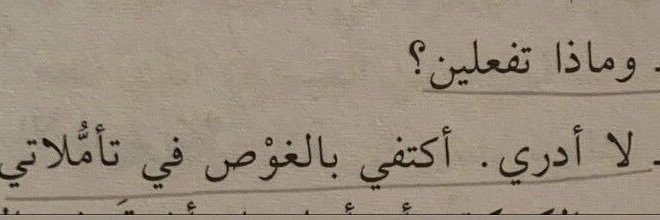 ـ وماذا تفعلين؟
ـ لا أدري. أكتفي بالغوْص في تأمُّلاتي